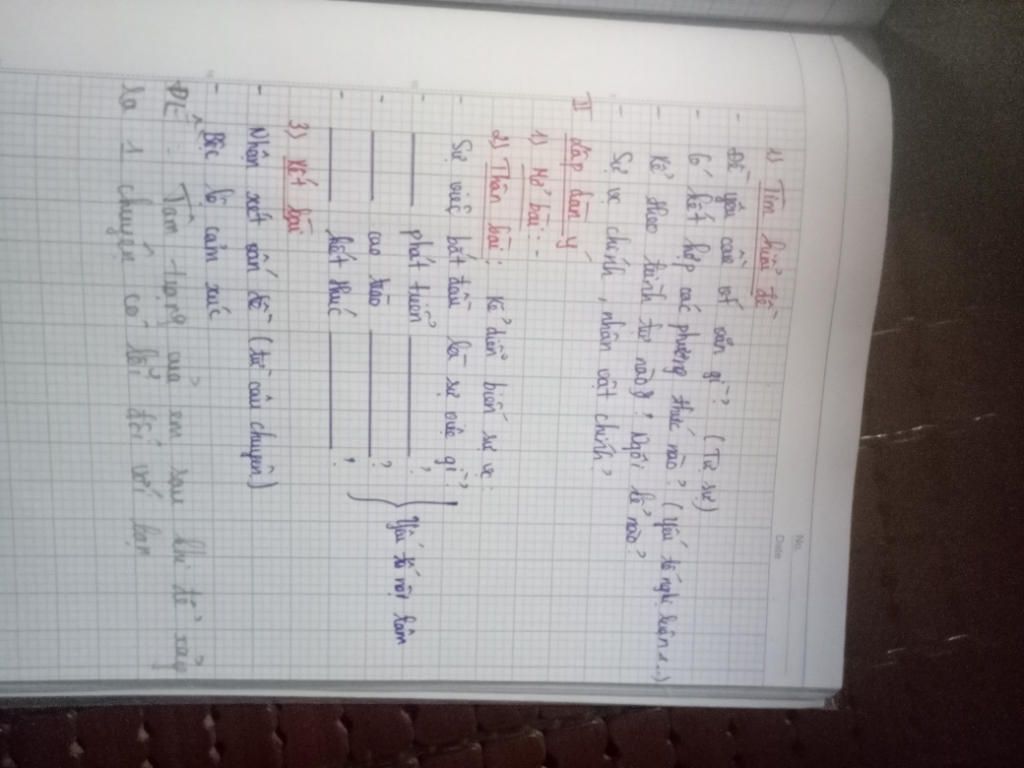 No.
Date
1) Tìm hiểu đề
- Đề yêu cầu viết văn gì? (Tự sự)
- Có kết hợp các phương thức nào? (Yếu tố nghị luận...)
- Kể theo trình tự nào? Ngôi kể nào?
- Sự vc chính, nhân vật chính?
II Lập dàn ý
1) Mở bài: -
2) Thân bài: Kể diễn biến sự vc:
- Sự việc bắt đầu là sự việc gì?
- ____ phát triển ____?
- ____ cao trào ____?
- ____ kết thúc ____?
Yếu tố nội tâm
3) Kết bài
- Nhận xét vấn đề (từ câu chuyện)
- Bộc lộ cảm xúc
ĐL: Tâm trạng của em sau khi để xảy
ra 1 chuyện có lỗi đối với bạn